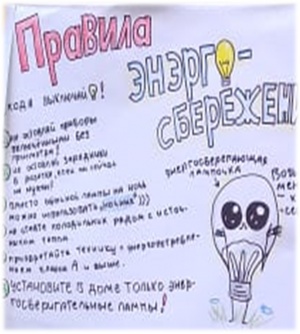 Правила
ЭНЭРГО-
СБЕРЕЖЕН
ХОДЯ ВЫКЛЮЧАЙ !
НЕ ОСТАВЛЯЙ ПРИБОРЫ
ВКЛЮЧЁННЫМИ БЕЗ
ПРИСМОТРА!
НЕ ОСТАВЛЯЙ ЗАРЯДНИКИ
В РОЗЕТКЕ, ЕСЛИ ОНИ СЕЙЧАС
НЕ НУЖНЫ!
ВМЕСТО ОБЫЧНОЙ ЛАМПЫ НА НОЧЬ
МОЖНО ИСПОЛЬЗОВАТЬ )))
НЕ СТАВЬТЕ ХОЛОДИЛЬНИК РЯДОМ С ИСТОЧ-
НИКОМ ТЕПЛА
ПРИОБРЕТАЙТЕ ТЕХНИКУ С ЭНЕРГОПОТРЕБЛЕ-
НИЕМ КЛАССА А И ВЫШЕ.
УСТАНОВИТЕ В ДОМЕ ТОЛЬКО ЭНЕР-
ГОСБЕРИГАТЕЛЬНЫЕ ЛАМПЫ!
ЭНЕРГОСБЕРЕГАЮЩАЯ
ЛАМПОЧКА